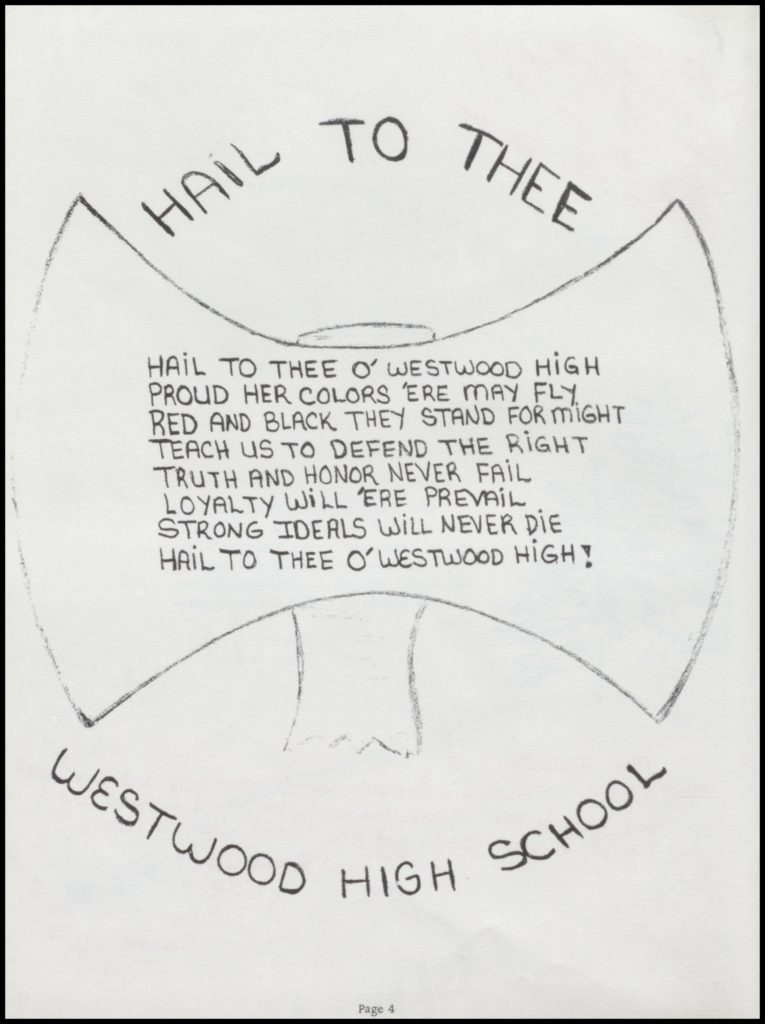 HAIL TO THEE
HAIL TO THEE O' WESTWOOD HIGH
PROUD HER COLORS 'ERE MAY FLY
RED AND BLACK THEY STAND FOR MIGHT
TEACH US TO DEFEND THE RIGHT
TRUTH AND HONOR NEVER FAIL
LOYALTY WILL 'ERE PREVAIL
STRONG IDEALS WILL NEVER DIE
HAIL TO THEE O' WESTWOOD HIGH!
WESTWOOD HIGH SCHOOL
Page 4